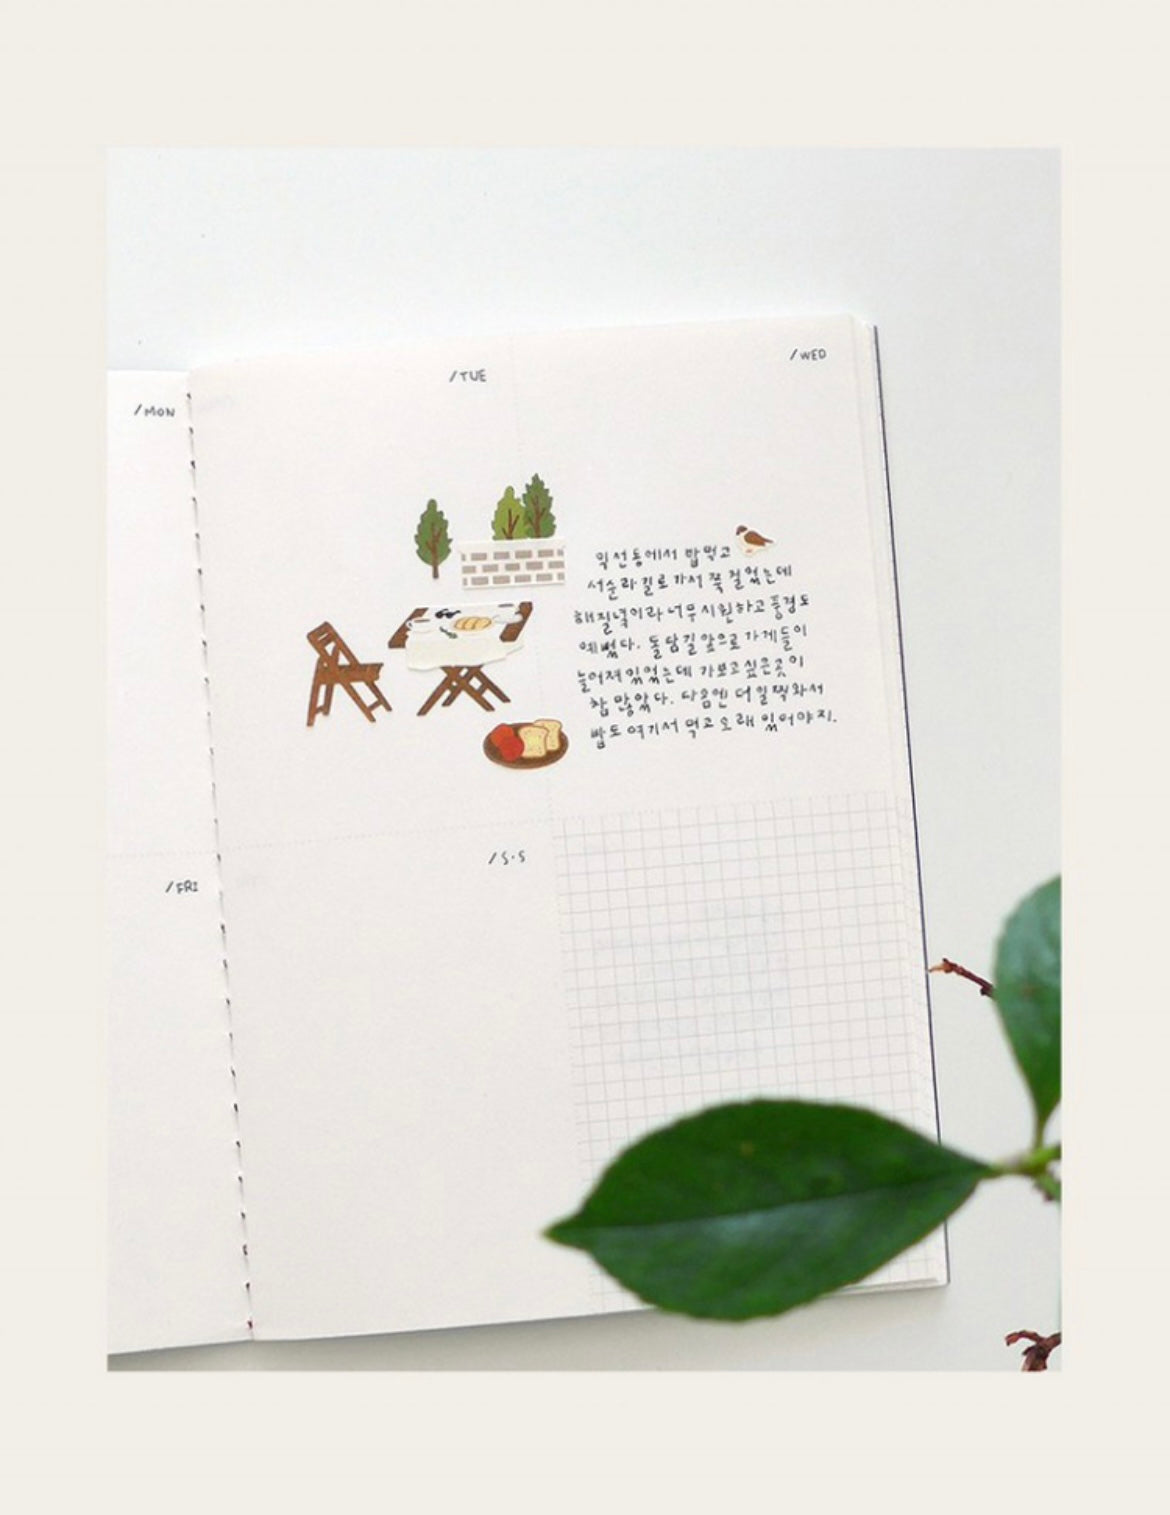 /MON
/TUE
/WED
익선동에서 밥먹고
서순라길로 가서 쭉 걸었는데
해질녘이라 너무 시원하고 풍경도
예뻤다. 돌담길 앞으로 가게들이
늘어져있었는데 가보고싶은곳이
참 많았다. 다음엔 더 일찍와서
밥도 여기서 먹고 오래 있어야지.
/FRI
/S·S